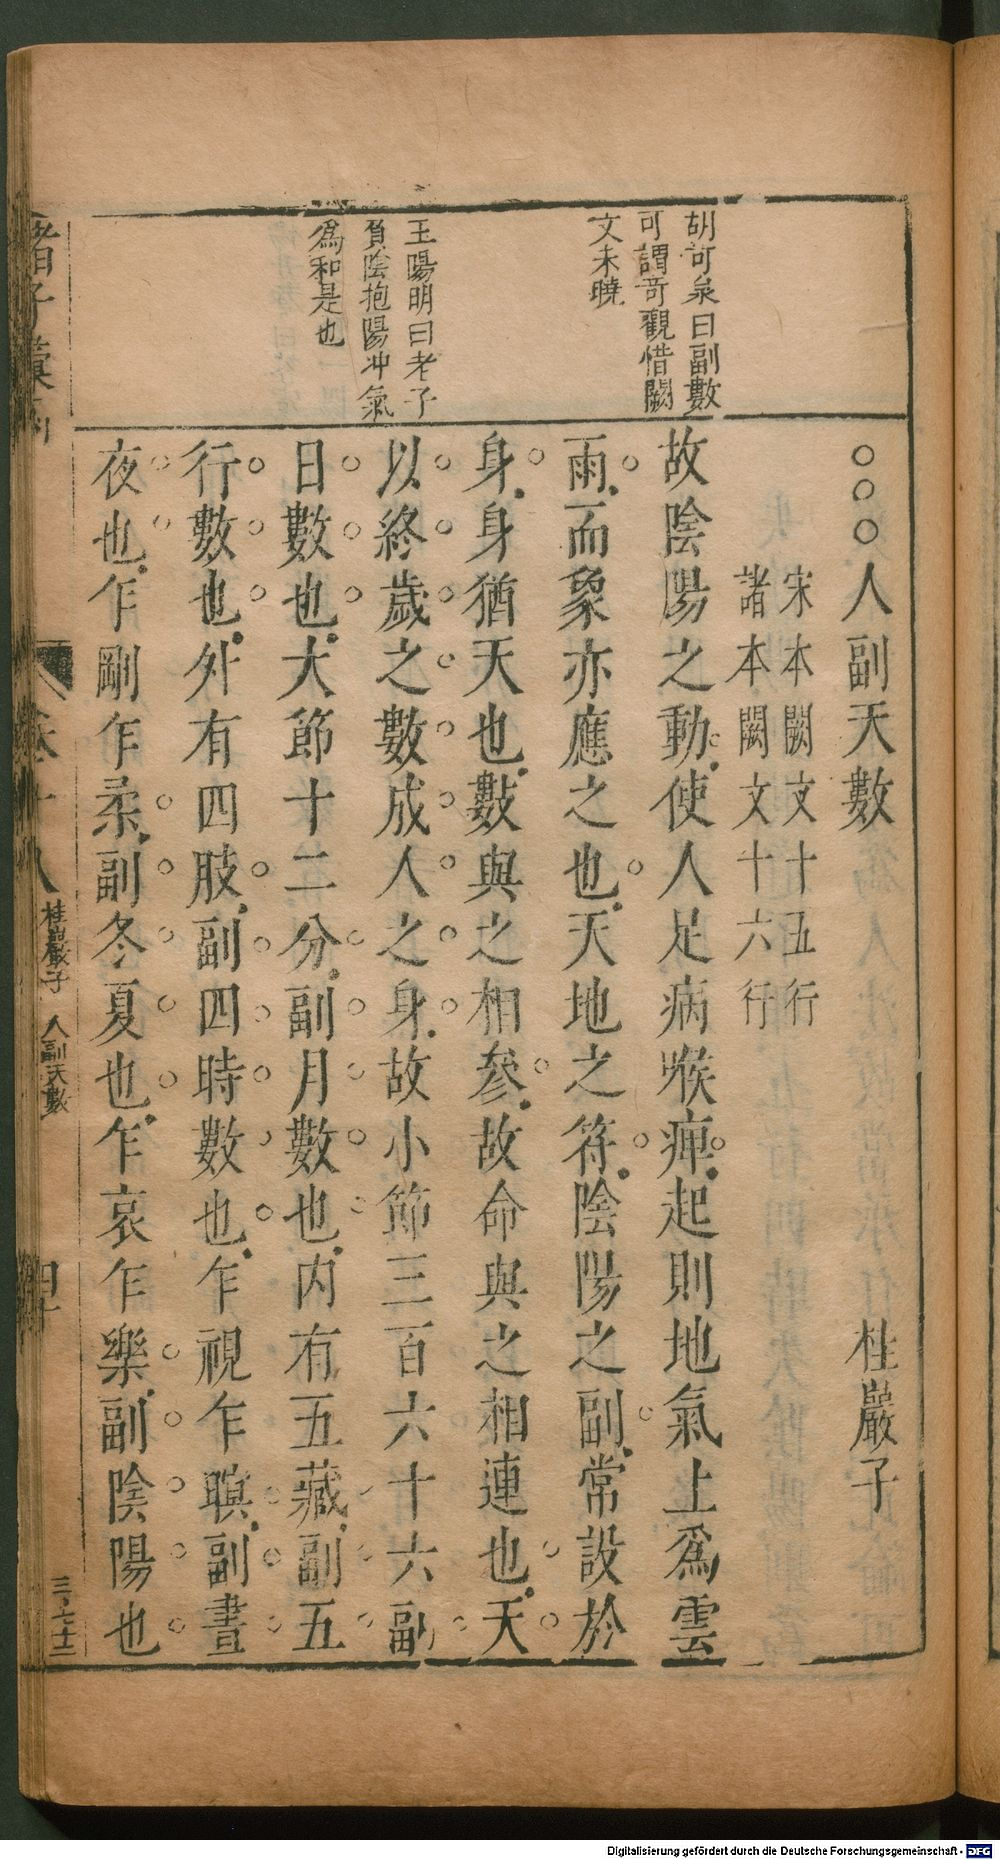 胡可泉曰副數
可謂奇觀惜闕
文未曉
王陽明曰老子
負陰抱陽冲氣
為和是也
○○○人副天數 桂巖子
宋本闕文十五行
諸本闕文十六行
故陰陽之動使人足病喉痺起則地氣上爲雲
雨而象亦應之也天地之符陰陽之副常設於
身身猶天也數與之相參故命與之相連也天
以終歲之數成人之身故小節三百六十六副
日數也大節十二分副月數也内有五藏副五
行數也外有四肢副四時數也乍視乍瞑副晝
夜也乍剛乍柔副冬夏也乍哀乍樂副陰陽也
諸子彙函
卷十八
桂巖子 人副天數
四十
Digitalisierung gefördert durch die Deutsche Forschungsgemeinschaft - DFG